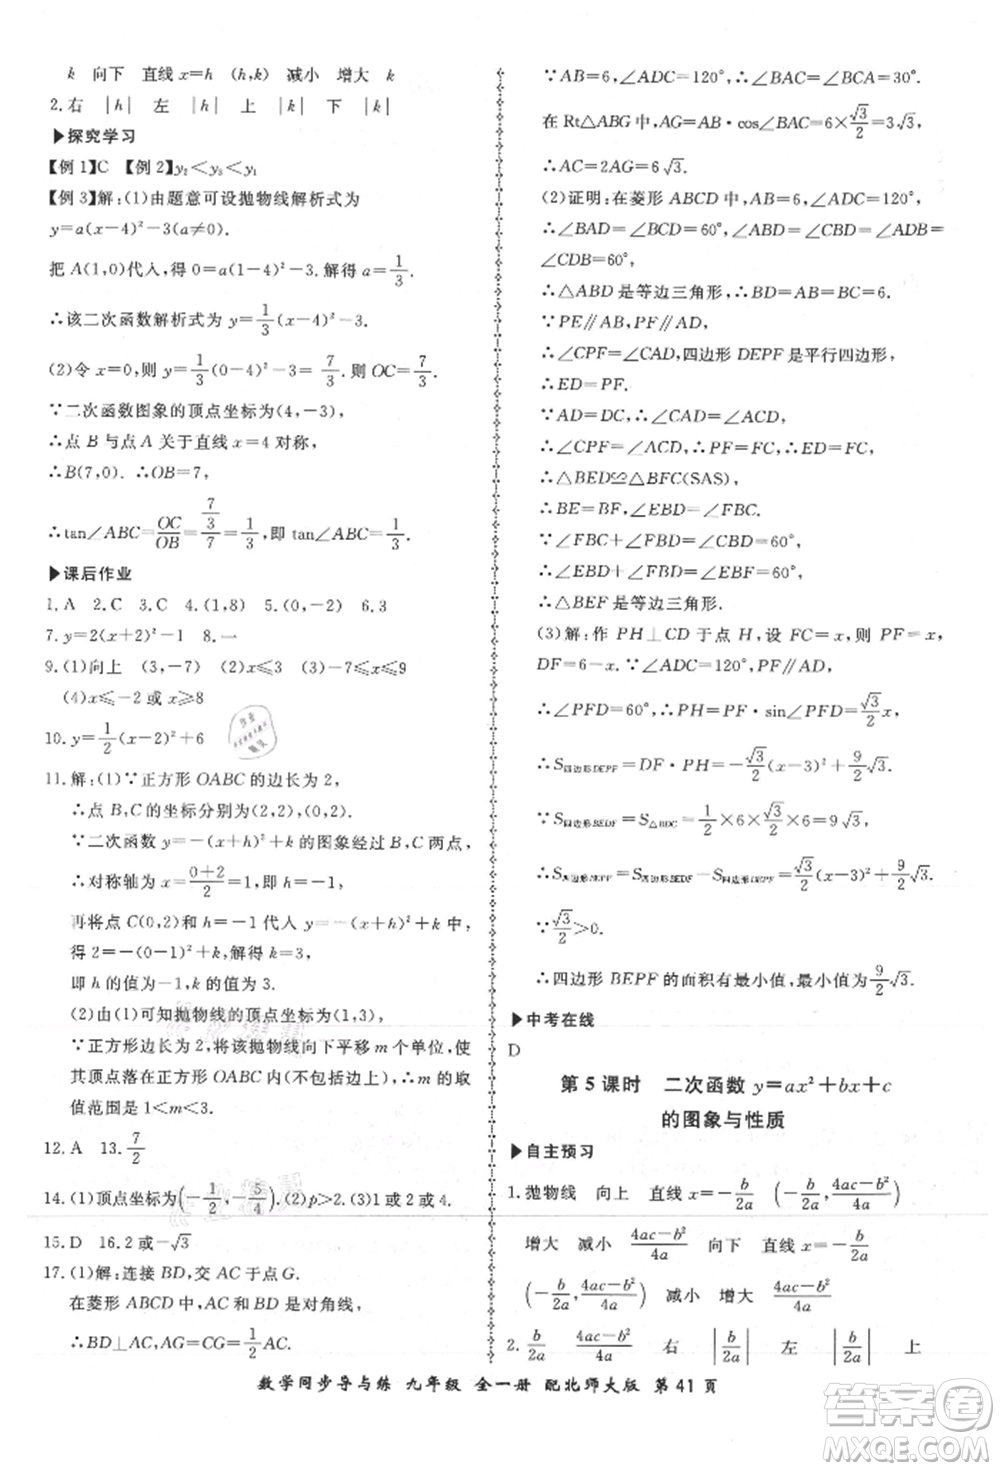 k 向下 直线x=h (h,k) 减小 增大 k
2.右 |h| 左 |h| 上 |k| 下 |k|
▶探究学习
【例1】C 【例2】y₂<y₃<y₁
【例3】解:(1)由题意可设抛物线解析式为
y=a(x-4)²-3(a≠0).
把A(1,0)代入,得0=a(1-4)²-3.解得a=1/3.
∴该二次函数解析式为y=1/3(x-4)²-3.
(2)令x=0,则y=1/3(0-4)²-3=7/3.则OC=7/3.
∵二次函数图象的顶点坐标为(4,-3),
∴点B与点A关于直线x=4对称,
∴B(7,0).∴OB=7.
∴tan∠ABC=OC/OB=(7/3)/7=1/3,即tan∠ABC=1/3.
▶课后作业
1.A 2.C 3.C 4.(1,8) 5.(0,-2) 6.3
7.y=2(x+2)²-1 8.一
9.(1)向上 (3,-7) (2)x≤3 (3)-x≤9
(4)x≤-2或x≥8
10.y=1/2(x-2)²+6
11.解:(1)∵正方形OABC的边长为2,
∴点B,C的坐标分别为(2,2),(0,2).
∵二次函数y=-(x+h)²+k的图象经过B,C两点,
∴对称轴为x=(0+2)/2=1,则h=-1.
再将点C(0,2)和h=-1代入y=-(x+h)²+k中,
得2=-(0-1)²+k,解得k=3,
即h的值为-1,k的值为3.
(2)由(1)可知抛物线的顶点坐标为(1,3),
∵正方形边长为2,将该抛物线向下平移m个单位,
其顶点在正方形OABC内(不包括边上),∴m的取
值范围是1<m<3.
12.A 13.7/2
14.(1)顶点坐标为(-1/2,-5/4).(2)p>2.(3)1或2或4.
15.D 16.2或-√3
17.(1)解:连接BD,交AC于点G.
在菱形ABCD中,AC和BD是对角线,
∴BD⊥AC,AG=CG=1/2AC.
∵AB=6,∠ADC=120°,∴∠BAC=∠BCA=30°.
在Rt△ABG中,AG=AB·cos∠BAC=6×√3/2=3√3,
∴AC=2AG=6√3.
(2)证明:在菱形ABCD中,AB=6,∠ADC=120°,
∴∠BAD=∠BCD=60°,∠ABD=∠CBD=∠ADB=
∠CDB=60°.
∴△ABD是等边三角形,∴BD=AB=6.
∵PE∥AB,PF∥AD,
∴∠CPF=∠CAD,四边形DEPF是平行四边形,
∴ED=PF.
∵AD=DC,∴∠CAD=∠ACD,
∴∠CPF=∠ACD,∴PF=CF,∴ED=CF.
∴△BED≌△BFC(SAS).
∴BE=BF,∠DBE=∠FBC.
∵∠FBC+∠FBD=60°,
∴∠DBE+∠FBD=∠EBF=60°.
∴△BEF是等边三角形.
(3)解:作PH⊥CD于点H,设FC=x,则PF=x,
DF=6-x,∵∠ADC=120°,PF∥AD,
∴∠PFD=60°,∴PH=PF·sin∠PFD=√3/2x,
∴S四边形DEPF=DF·PH=-√3/2(x-3)²+9/2√3,
∵S四边形BEDF=S△BDC=1/2×6×√3/2×6=9√3,
∴S四边形BEPF=S四边形BEDF-S四边形DEPF=√3/2(x-3)²+9/2√3.
∵√3/2>0.
∴四边形BEPF的面积有最小值,最小值为9/2√3.
▶中考在线
D
第5课时 二次函数y=ax²+bx+c
的图象与性质
▶自主预习
1.抛物线 向上 直线x=-b/2a (-b/2a,(4ac-b²)/4a)
增大 减小 (4ac-b²)/4a 向下 直线x=-b/2a
(-b/2a,(4ac-b²)/4a) 减小 增大 (4ac-b²)/4a
2.b/2a (4ac-b²)/4a 右 |b/2a| 左 |b/2a| 上
数学同步导与练 九年级 全一册 配北师大版 第41页
答案圈
MXQE.COM